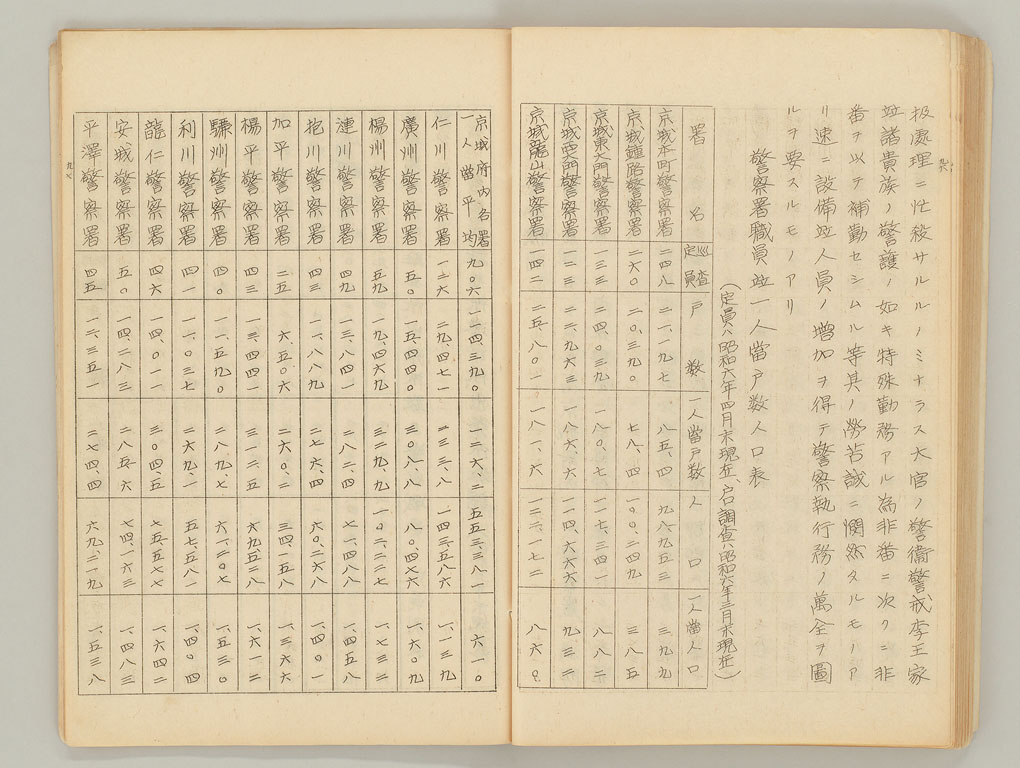 九六
扱處理ニ忙殺サルルノミナラス大官ノ警衞警戒李王家
竝諸貴族ノ警護ノ如キ特殊勤務アル為非番ニ次クニ非
番ヲ以テ補勤セシムル等其ノ勞苦誠ニ憫然タルモノア
リ速ニ設備竝人員ノ増加ヲ得テ警察執行務ノ萬全ヲ圖
ルヲ要スルモノアリ
警察署職員竝一人當戸數人口表
(定員ハ昭和六年四月末現在、戸口調査ハ昭和六年三月末現在)
署名 巡査定員 戸數 一人當戸数 人口 一人當人口
京城本町警察署 二四八 二一、一九七 八五、四 九八、九五三 三九九
京城鍾路警察署 二六〇 二〇、三九〇 七八、四 一〇〇、二四九 三八五
京城東大門警察署 一三三 二四、〇三九 一八〇、七 一一七、三四一 八八二
京城西大門警察署 一二三 二二、九六三 一八六、六 一一四、六六六 九三二
京城龍山警察署 一四二 二五、八〇一 一八一、六 一二二、一七二 八六〇
京城府内各署一人當平均 九〇六 一一四、三九〇 一二六、二 五五三、三八一 六一〇
仁川警察署 一二六 二九、四七一 二三三、八 一四三、五八六 一、一三九
廣州警察署 五〇 一五、四四〇 三〇八、八 八〇、四七六 一、六〇九
楊州警察署 五九 一九、四六九 三二九、九 一〇二、二二七 一、七三二
漣川警察署 四九 一三、八四一 二八二、四 七一、四八八 一、四五八
抱川警察署 四三 一一、八八九 二七六、四 六〇、二六八 一、四〇一
加平警察署 二五 六、五〇六 二六〇、二 三四、一五八 一、三六六
楊平警察署 四三 一三、四四一 三一二、五 六九、三二八 一、六一二
驪州警察署 四〇 一一、五九〇 二八九、七 六一、二〇七 一、五三〇
利川警察署 四一 一一、〇三七 二六九、一 五七、五八一 一、四〇四
龍仁警察署 四六 一四、〇一一 三〇四、五 七五、五七七 一、六四二
安城警察署 五〇 一四、二八三 二八五、六 七四、一六三 一、四八三
平澤警察署 四五 一二、三五一 二七四、四 六九、二一九 一、五三八
九七